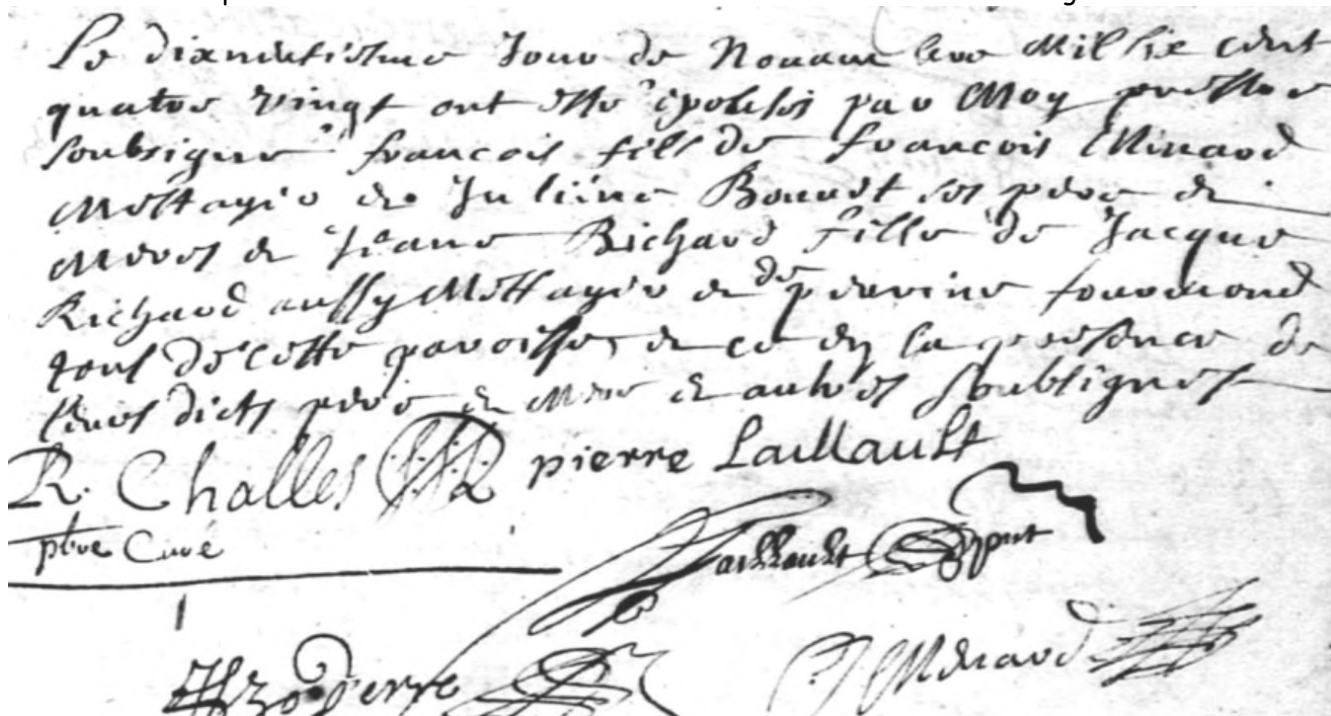 Le dixneufiesme Jour de Novambre Mil sie cent
quatre vingt ont esté épousés par Moy prestre
soubsigné françois fils de françois Minaud
Mettayer et Juliène Bouvet ses père et
Mères et Jeane Richard fille de Jacque
Richard aussy Mettayer et de perrine
tous de cette paroisse, et ce en la présence de
leurs dicts père et mère et autres soubsignes
R. Challes pierre Laillault
pbre Curé
Jaillault
Menard